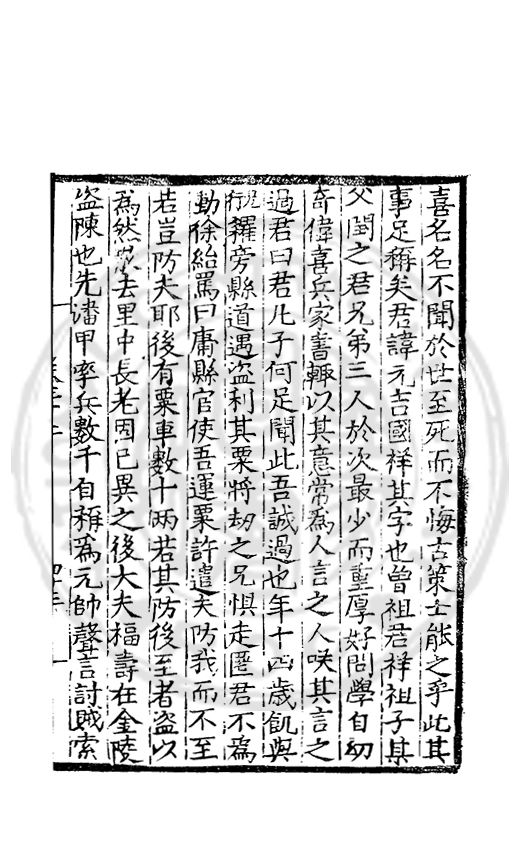 喜名名不聞於世至死而不悔古策士能之乎此其
事足稱矣君諱元吉國祥其字也曾祖君祥祖子其
父閏之君兄弟三人於次最少而重厚好問學自幼
奇偉喜兵家書輒以其意常為人言之人唉其言之
過君曰君几子何足聞此吾誠過也年十四歲飢與
兄行糴旁縣道遇盗利其粟將劫之兄惧走匿君不為
動徐紿罵曰庸縣官使吾運粟許遣夫防我而不至
若豈防夫耶後有粟車數十两若其防後至者盗以
為然去里中長老因已異之後大夫楅壽在金陵
盗陳也先潘甲率兵數千自稱為元帥聲言討賊索